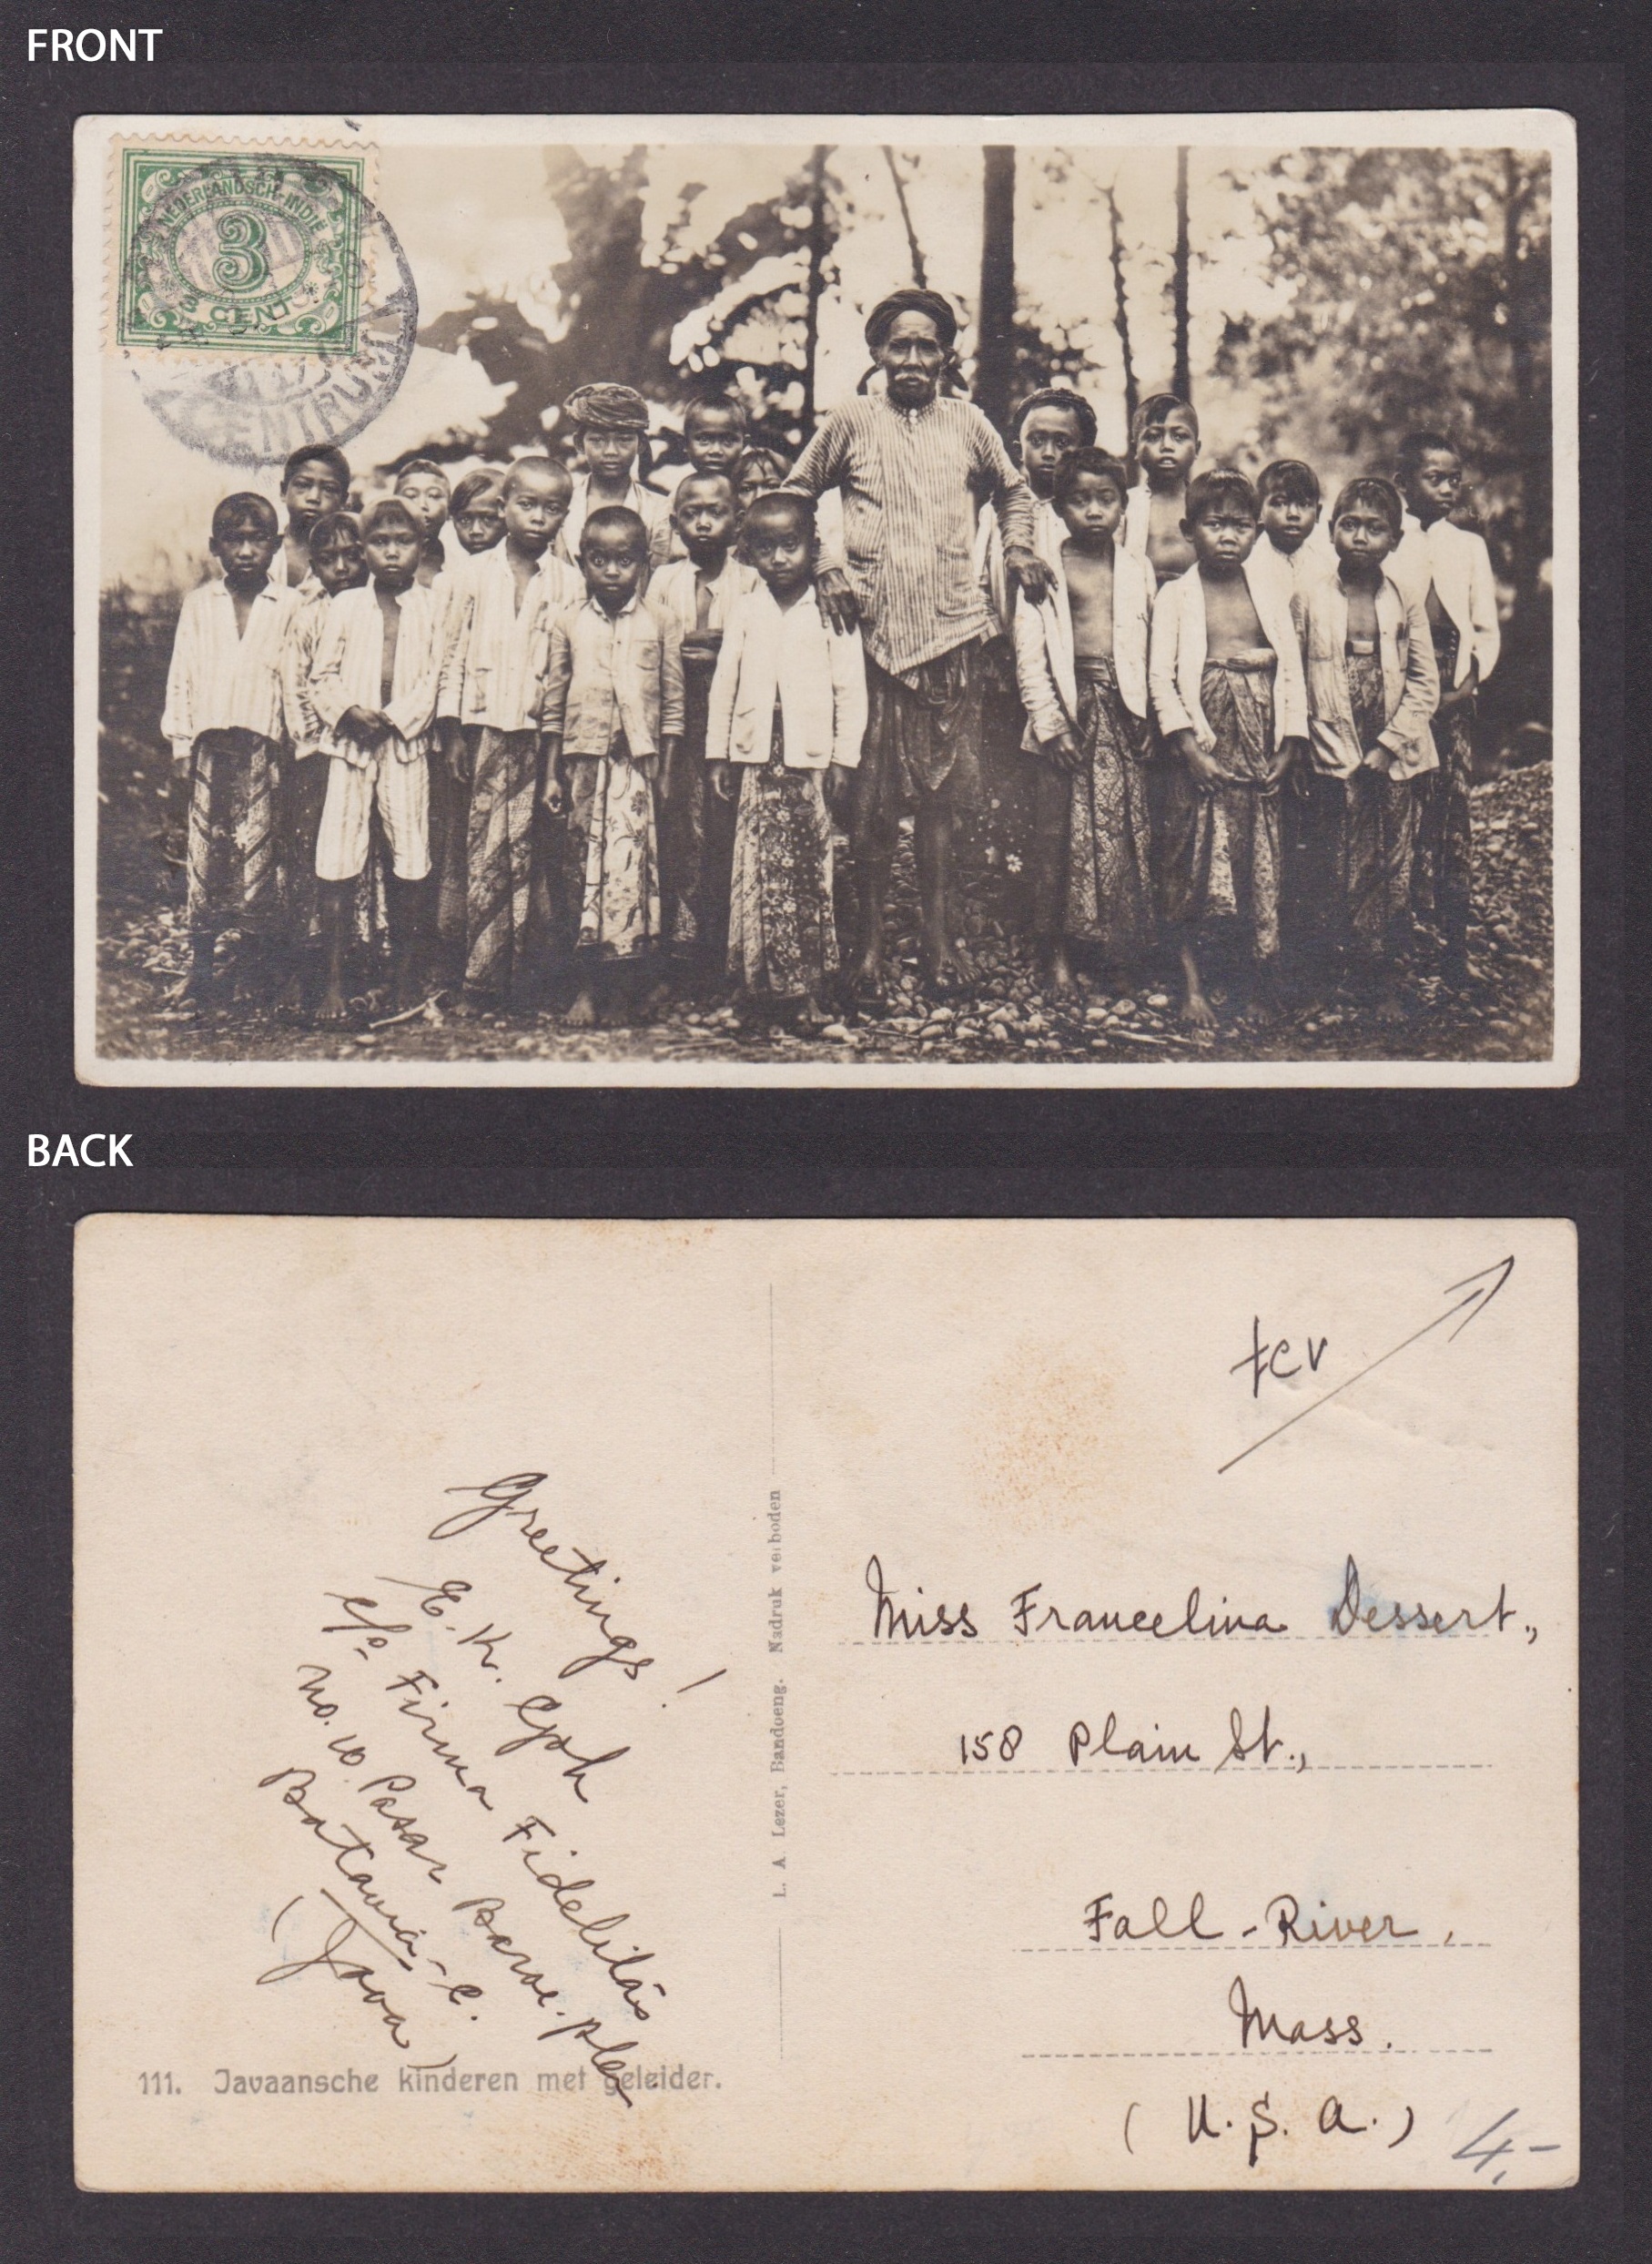 FRONT
NEDERLANDSCH-INDIË
3
CENT
BACK
TCV
Greetings!
E. K. Goh
c/o Firma Fidelitas
No. 10 Pasar Baroe.
Batavia-C.
(Java)
L. A Lezer, Bandoeng. Nadruk verboden
Miss Francelina Dessert,
158 Plain St.,
Fall-River,
Mass.
(U.S.A.)
4,-
111. Javaansche kinderen met geleider.